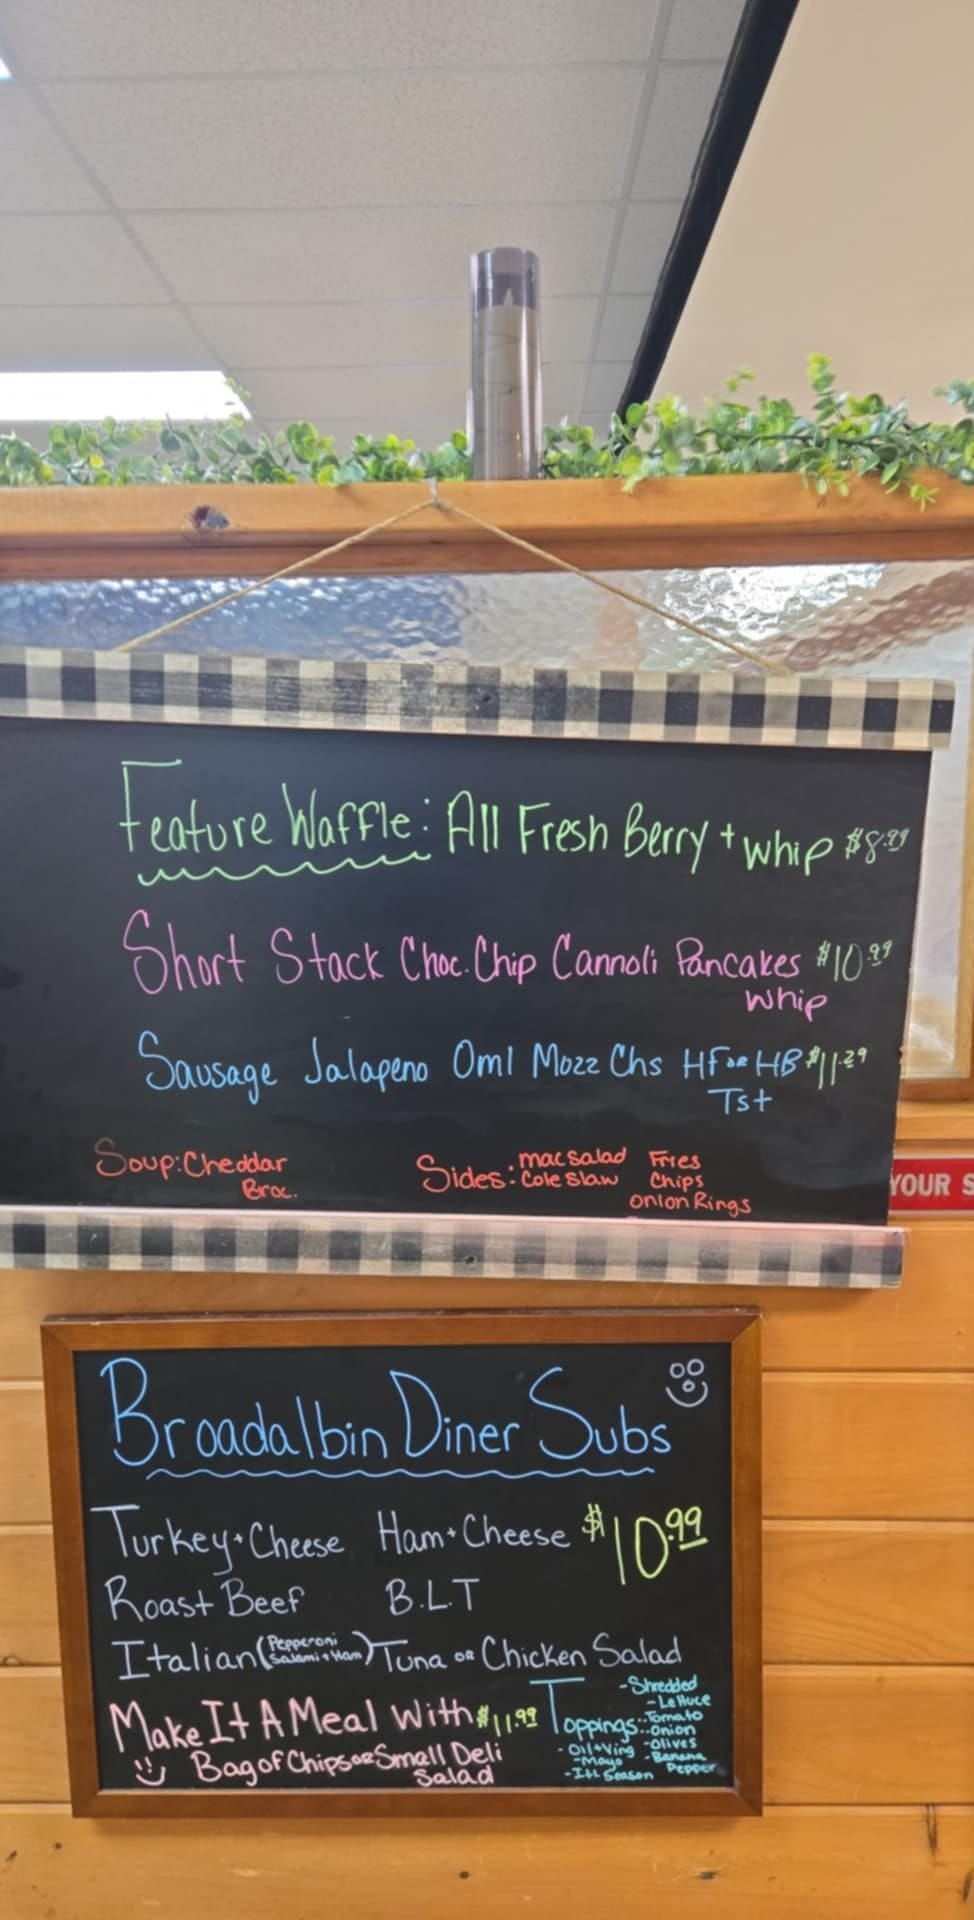 Feature Waffle: All Fresh Berry + Whip $8.99
Short Stack Choc. Chip Cannoli Pancakes $10.99
Whip
Sausage Jalapeno Oml Mozz Chs HF or HB $11.29
Tst
Soup: Cheddar
Broc.
Sides: mac salad Fries
Cole Slaw Chips
onion Rings
YOUR S
Broadalbin Diner Subs
Turkey + Cheese Ham + Cheese $10.99
Roast Beef B.L.T
Italian (Pepperoni Salami + Ham) Tuna or Chicken Salad
Make It A Meal With $11.99
Bag of Chips or Small Deli
Salad
Toppings:
- Shredded
- Lettuce
- Tomato
- Onion
- Oil + Ving - Olives
- Mayo - Banana
- Itl Season Pepper